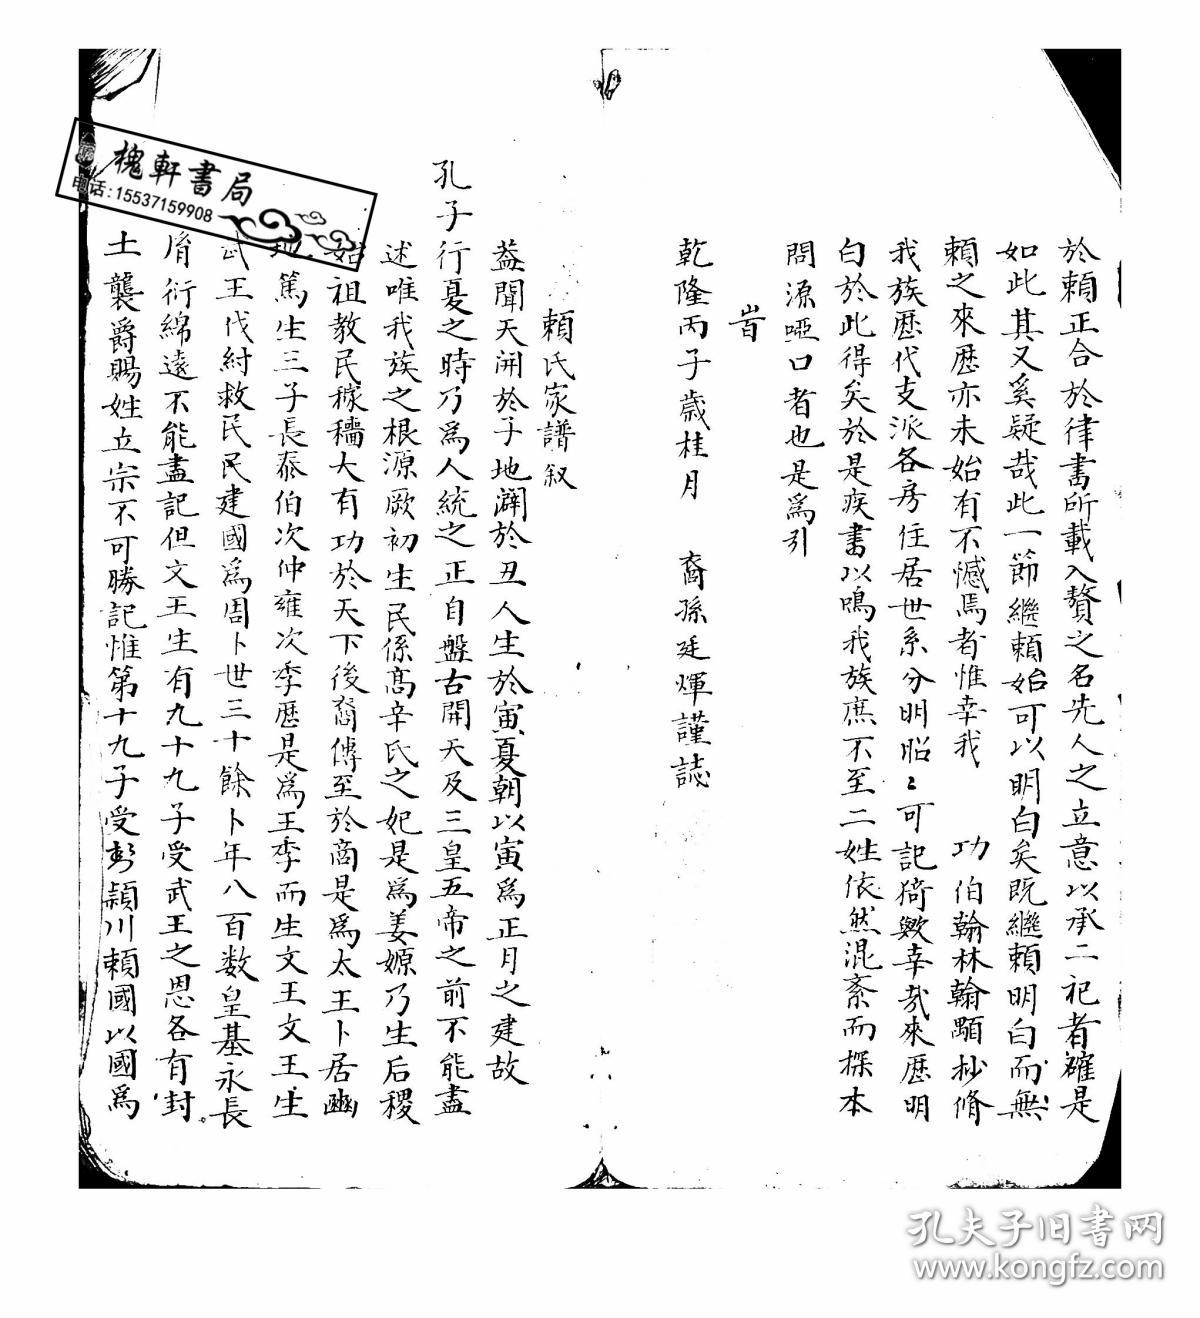 於賴正合於律書所載入贅之名先人之立意以承二祀者確是
如此其又奚疑哉此一節繼賴始可以明白矣既繼賴明白而無
賴之來歷亦未始有不憾焉者惟幸我 功伯翰林翰顯抄脩
我族歷代支派各房住居世系分明昭〻可記猗歟幸哉來歷明
白於此得矣於是疾書以鳴我族庶不至二姓依然混紊而探本
問源啞口者也是爲引
旹
乾隆丙子歲桂月 裔孫廷煇謹誌
賴氏家譜叙
葢聞天開於子地闢於丑人生於寅夏朝以寅爲正月之建故
孔子行夏之時乃爲人統之正自盤古開天及三皇五帝之前不能盡
述唯我族之根源厥初生民係高辛氏之妃是爲姜嫄乃生后稷
始祖教民稼穡大有功於天下後裔傳至於商是爲太王卜居豳
地篤生三子長泰伯次仲雍次季歷是爲王季而生文王文王生
武王伐紂救民民建國爲周卜世三十餘卜年八百数皇基永長
胥衍綿遠不能盡記但文王生有九十九子受武王之恩各有封
土襲爵賜姓立宗不可勝記惟第十九子受彭潁川賴國以國爲
槐軒書局
电话:15537159908
孔夫子旧书网
www.kongfz.com